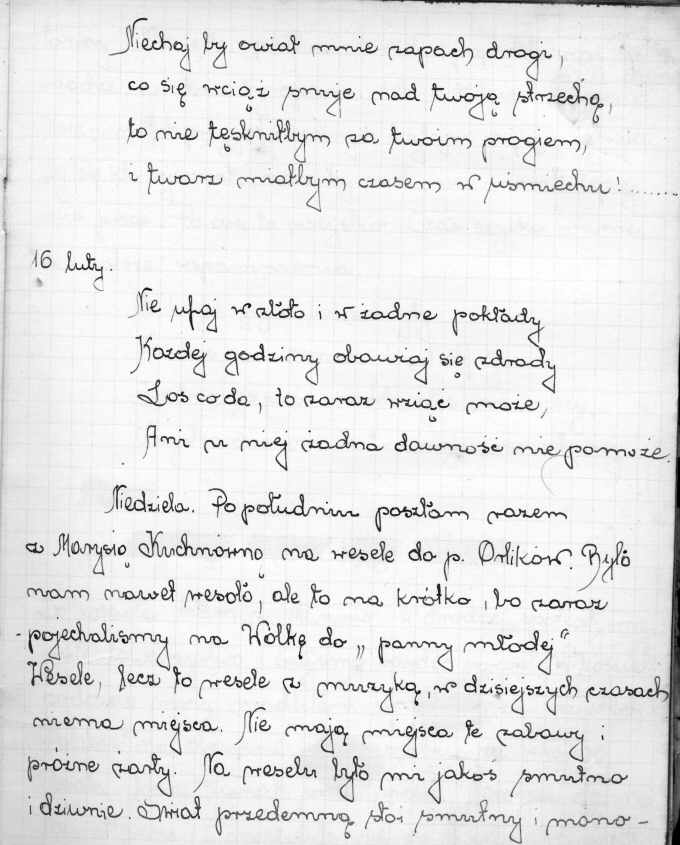 Niechaj by owiał mnie zapach drogi,
co się wciąż snuje nad twoją strzechą,
to nie tęskniłbym za twoim progiem,
i twarz miałbym czasem w uśmiechu!.......
16 luty.
Nie ufaj w złoto i w żadne pokłady
Każdej godziny obawiaj się zdrady
Los co da, to zaraz wziąć może,
Ani u niej żadna dawność nie pomoże.
Niedziela. Po południu poszłam razem
z Marysią Kuchnówną na wesele do p. Orlików. Było
nam nawet wesoło, ale to na krótko, bo zaraz
pojechalismy na Wólkę do „panny młodej“
Wesele, lecz to wesele z muzyką, w dzisiejszych czasach
niema miejsca. Nie mają miejsca te zabawy i
próżne żarty. Na weselu było mi jakoś smutno
i dziwnie. Świat przedemną stoi smutny i mono-